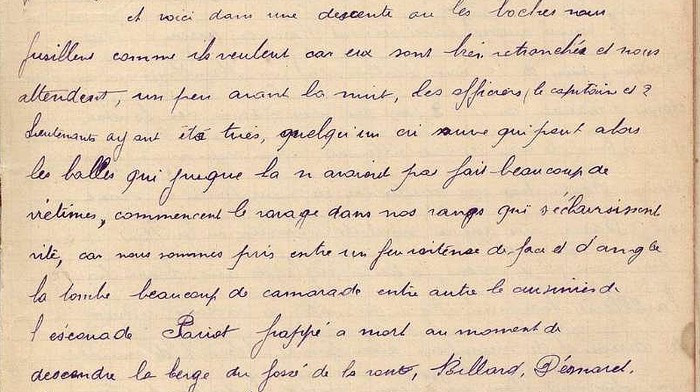 et voici dans une descente ou les boches nous
fusillent comme ils veulent car eux sont bien retranchés et nous
attendent, un peu avant la nuit, les officiers, le capitaine et 2
Lieutenants ayant été tués, quelqu'un cri sauve qui peut alors
les balles qui jusque la n avaient pas fait beaucoup de
victimes, commencent le ravage dans nos rangs qui s'éclaircissent
vite, car nous sommes pris entre un feu intense de face et d'angle
la tombe beaucoup de camarade entre autre le cuisinier de
l escouade Pariot frappé a mort au moment de
descendre la berge du fossé de la route, Billard, Désnard.